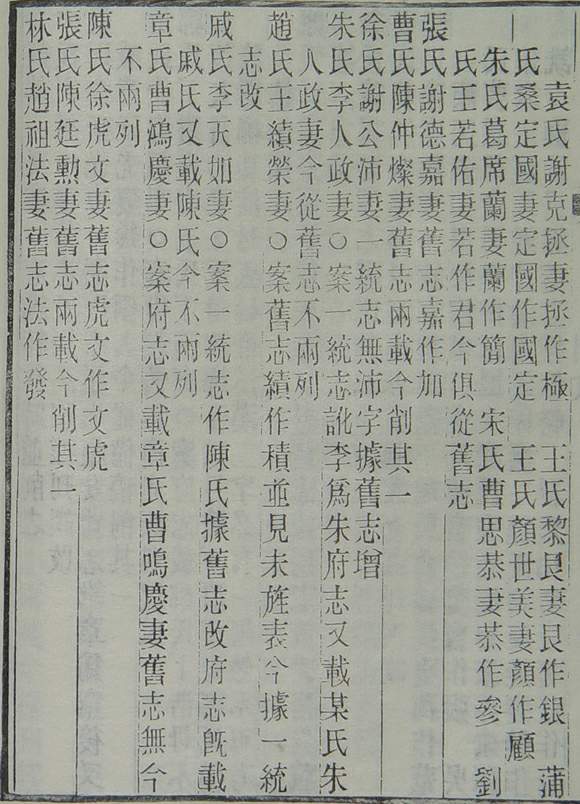 袁氏謝克拯妻拯作極　王氏黎艮妻艮作銀　蒲
氏桑定國妻定國作國定　王氏顏世美妻顏作顧
朱氏葛席蘭妻蘭作簡　宋氏曹思恭妻恭作參　劉
氏王若佑妻若作君今俱從舊志
張氏謝德嘉妻舊志嘉作加
曹氏陳仲燦妻舊志兩載今削其一
徐氏謝公沛妻一統志無沛字據舊志增
朱氏李人政妻○案一統志訛李爲朱府志又載某氏朱
人政妻今從舊志不兩列
趙氏王績榮妻○案舊志績作積並見未旌表今據一統
志改
戚氏李天如妻○案一統志作陳氏據舊志改府志既載
戚氏又載陳氏今不兩列
章氏曹鴻慶妻○案府志又載章氏曹鳴慶妻舊志無今
不兩列
陳氏徐虎文妻舊志虎文作文虎
張氏陳廷勲妻舊志兩載今削其一
林氏趙祖法妻舊志法作發